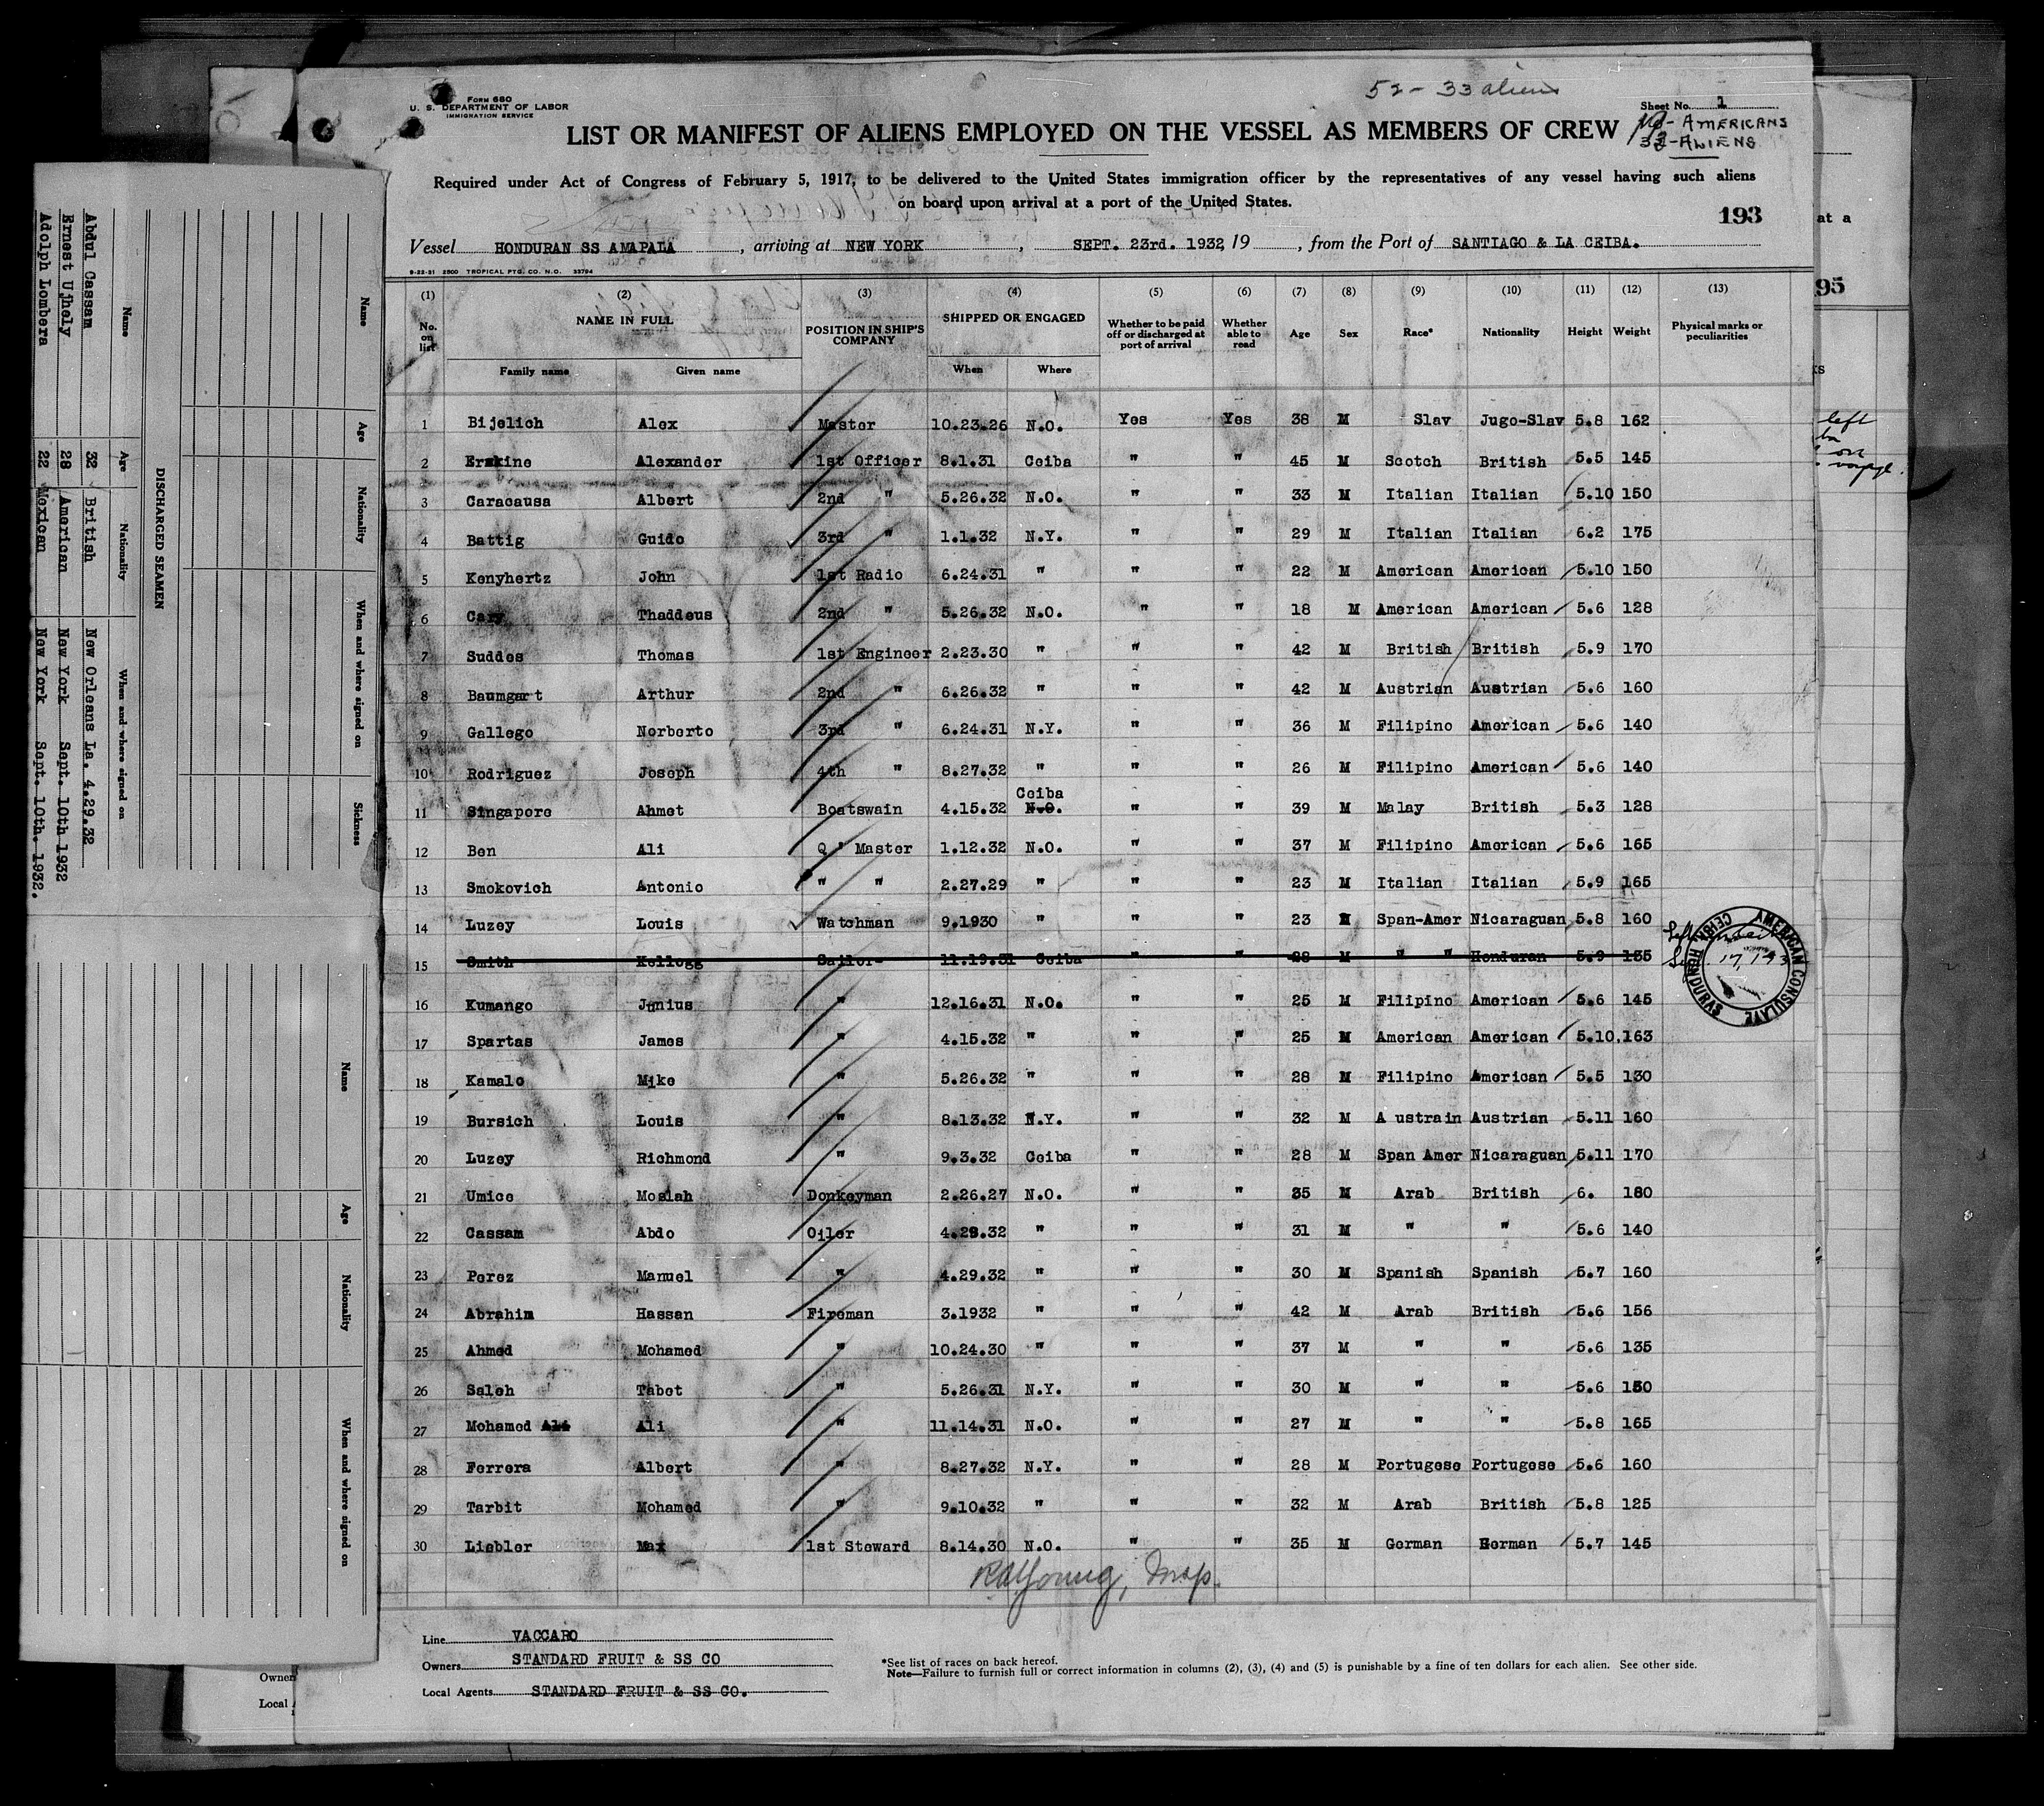 52 - 33 aliens
Form 680
U. S. DEPARTMENT OF LABOR
IMMIGRATION SERVICE
Sheet No. 1
LIST OR MANIFEST OF ALIENS EMPLOYED ON THE VESSEL AS MEMBERS OF CREW
- AMERICANS
33-ALIENS
Required under Act of Congress of February 5, 1917, to be delivered to the United States immigration officer by the representatives of any vessel having such aliens
on board upon arrival at a port of the United States.
193
Vessel HONDURAN SS AMAPALA, arriving at NEW YORK, SEPT. 23rd. 1932 19, from the Port of SANTIAGO & LA CEIBA.
9-22-31 2500 TROPICAL PTG. CO. N.O. 33794
(1) (2) (3) (4) (5) (6) (7) (8) (9) (10) (11) (12) (13)
No. on list NAME IN FULL POSITION IN SHIP'S COMPANY SHIPPED OR ENGAGED Whether to be paid off or discharged at port of arrival Whether able to read Age Sex Race* Nationality Height Weight Physical marks or peculiarities
Family name Given name When Where
1 Bijelich Alex Master 10.23.26 N.O. Yes Yes 38 M Slav Jugo-Slav 5.8 162
2 Erskine Alexander 1st Officer 8.1.31 Ceiba " " 45 M Scotch British 5.5 145
3 Caracausa Albert 2nd " 5.26.32 N.O. " " 33 M Italian Italian 5.10 150
4 Battig Guido 3rd " 1.1.32 N.Y. " " 29 M Italian Italian 6.2 175
5 Kenyhertz John 1st Radio 6.24.31 " " " 22 M American American 5.10 150
6 Cary Thaddeus 2nd " 5.26.32 N.O. " " 18 M American American 5.6 128
7 Suddes Thomas 1st Engineer 2.23.30 " " " 42 M British British 5.9 170
8 Baumgart Arthur 2nd " 6.26.32 " " " 42 M Austrian Austrian 5.6 160
9 Gallego Norberto 3rd " 6.24.31 N.Y. " " 36 M Filipino American 5.6 140
10 Rodriguez Joseph 4th " 8.27.32 " " " 26 M Filipino American 5.6 140
11 Singapore Ahmet Boatswain 4.15.32 Ceiba N.O. " " 39 M Malay British 5.3 128
12 Ben Ali Q ' Master 1.12.32 N.O. " " 37 M Filipino American 5.6 165
13 Smokovich Antonio " " 2.27.29 " " " 23 M Italian Italian 5.9 165
14 Luzey Louis Watchman 9.1930 " " " 23 M Span-Amer Nicaraguan 5.8 160
15 Smith Kellogg Sailor- 11.19.31 Ceiba " " 28 M " " Honduran 5.9 135
AMERICAN CONSULATE CEIBA, HONDURAS
16 Kumango Junius " 12.16.31 N.O. " " 25 M Filipino American 5.6 145
17 Spartas James " 4.15.32 " " " 25 M American American 5.10 163
18 Kamalo Mike " 5.26.32 " " " 28 M Filipino American 5.5 130
19 Bursich Louis " 8.13.32 N.Y. " " 32 M A ustrain Austrian 5.11 160
20 Luzey Richmond " 9.3.32 Ceiba " " 28 M Span Amer Nicaraguan 5.11 170
21 Umice Mosiah Donkeyman 2.26.27 N.O. " " 35 M Arab British 6. 180
22 Cassam Abdo Oiler 4.29.32 " " " 31 M " " 5.6 140
23 Perez Manuel " 4.29.32 " " " 30 M Spanish Spanish 5.7 160
24 Abrahim Hassan Fireman 3.1932 " " " 42 M Arab British 5.6 156
25 Ahmed Mohamed " 10.24.30 " " " 37 M " " 5.6 135
26 Saleh Tabet " 5.26.31 N.Y. " " 30 M " " 5.6 150
27 Mohamed Ali Ali " 11.14.31 N.O. " " 27 M " " 5.8 165
28 Ferrera Albert " 8.27.32 N.Y. " " 28 M Portugese Portugese 5.6 160
29 Tarbit Mohamed " 9.10.32 " " " 32 M Arab British 5.8 125
30 Liebler Max 1st Steward 8.14.30 N.O. " " 35 M German German 5.7 145
RAYoung, Insp.
Line VACCARO
Owners STANDARD FRUIT & SS CO
Local Agents STANDARD FRUIT & SS CO.
*See list of races on back hereof.
Note—Failure to furnish full or correct information in columns (2), (3), (4) and (5) is punishable by a fine of ten dollars for each alien. See other side.
DISCHARGED SEAMEN
Name Age Nationality When and where signed on
Abdul Cassam 32 British New Orleans La. 4.29.32
Ernest Ujhely 28 American New York Sept. 10th 1932
Adolph Lombera 22 Mexican New York Sept. 10th. 1932.
Name Age Nationality When and where signed on Sickness
Name Age Nationality When and where signed on
Owner
Local
at a
95
left
on
voyage.